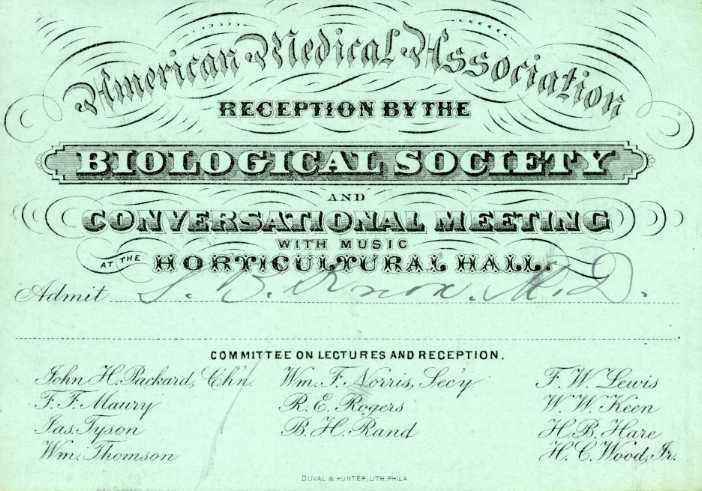 American Medical Association
RECEPTION BY THE
BIOLOGICAL SOCIETY
AND
CONVERSATIONAL MEETING
WITH MUSIC
AT THE HORTICULTURAL HALL.
Admit S. B. Knox. M.D.
COMMITTEE ON LECTURES AND RECEPTION.
John H. Packard, Ch'n Wm. F. Norris, Sec'y F. W. Lewis
F. F. Maury R. E. Rogers W. W. Keen
Jas. Tyson B. H. Rand H. B. Hare
Wm. Thomson H. C. Wood, Jr.
DUVAL & HUNTER, LITH. PHILA.